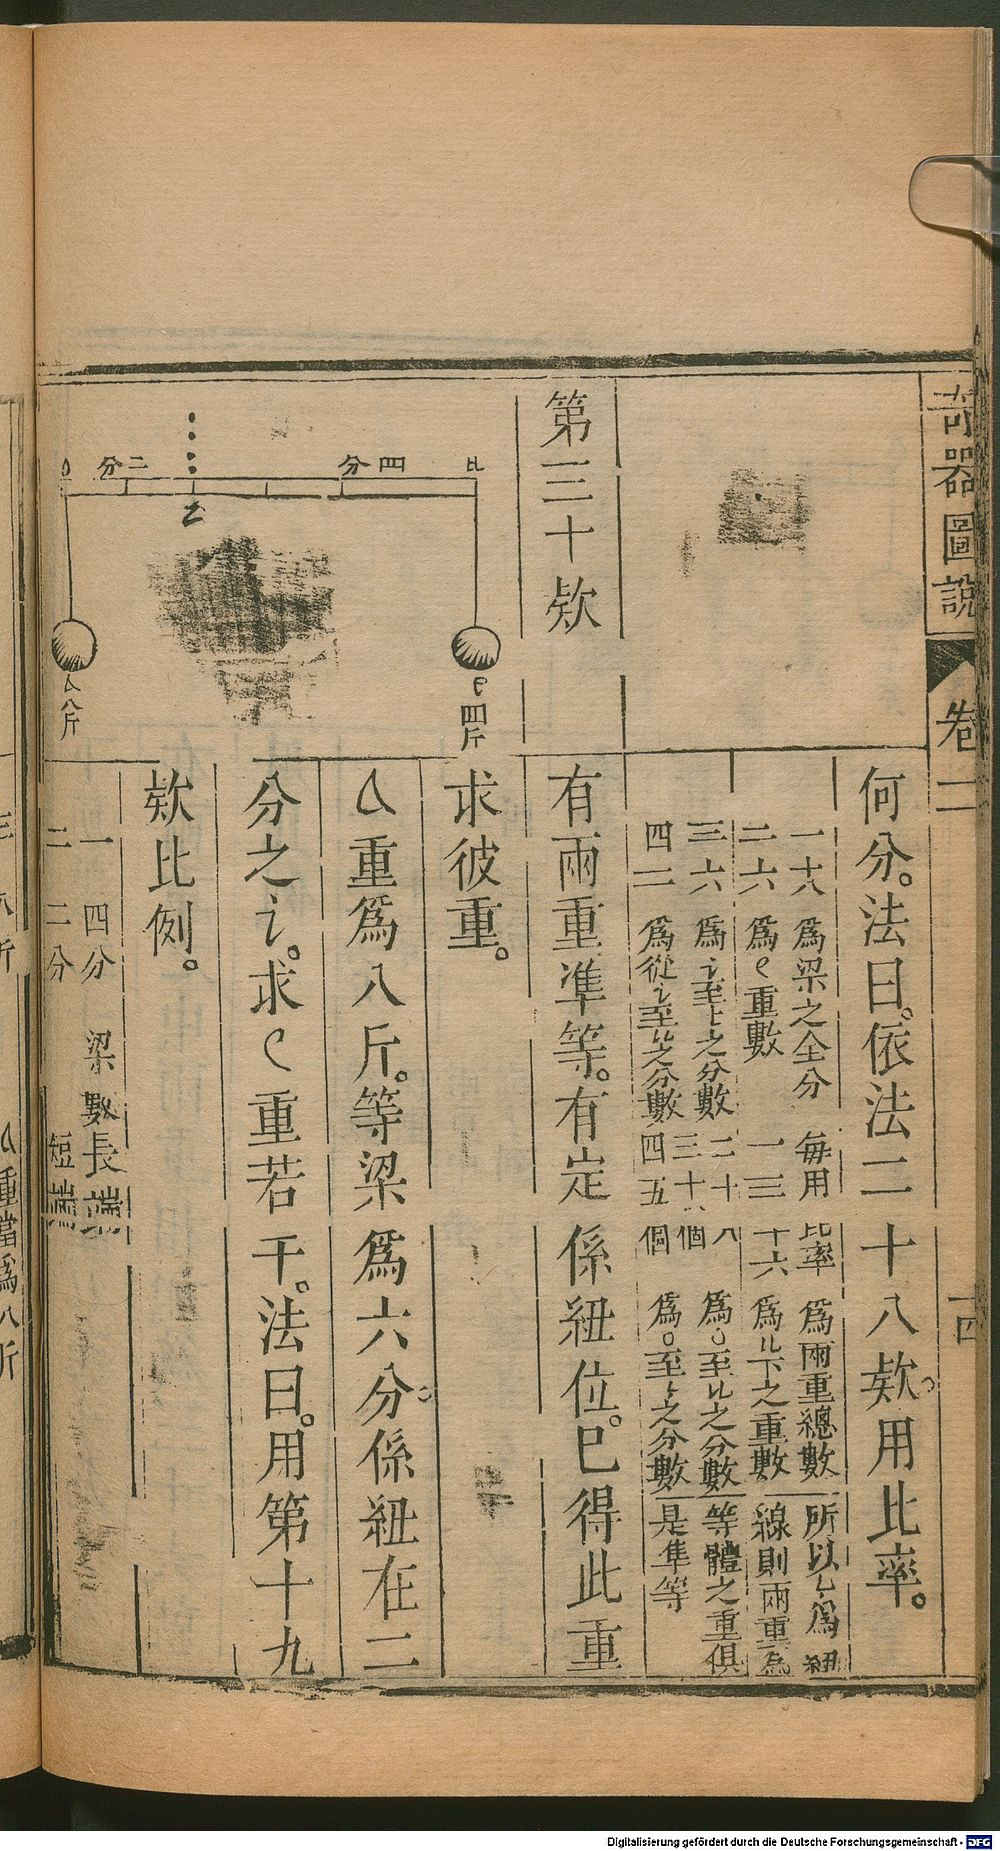 奇器圖說 卷二 十四
何分。法曰。依法二十八欵。用比率。
一十八 為梁之全分 每用比率 為兩重總數 所以為紐
二六 為重數 一三十六 為下之重數 線則兩重為
三六 為至之分數 二十八 為至之分數 等體之重俱
四二 為從至之分數 四五個 為至之分數 是準等
第三十欵
有兩重準等。有定係紐位。巳得此重
求彼重。
重爲八斤。等梁爲六分。係紐在二
分之。求重若干。法曰。用第十九
欵比例。
一 四分 梁數長端
二 二分 短端
二分
四分
四斤
八斤
重當爲八斤
Digitalisierung gefördert durch die Deutsche Forschungsgemeinschaft - DFG